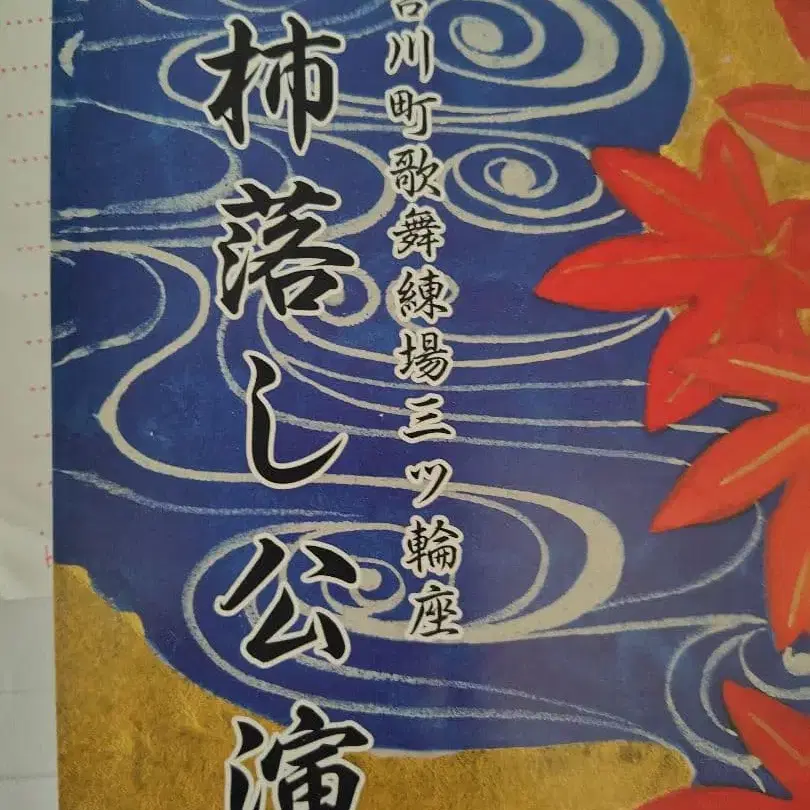 川町歌舞練場三ツ輪座
杮落し公演